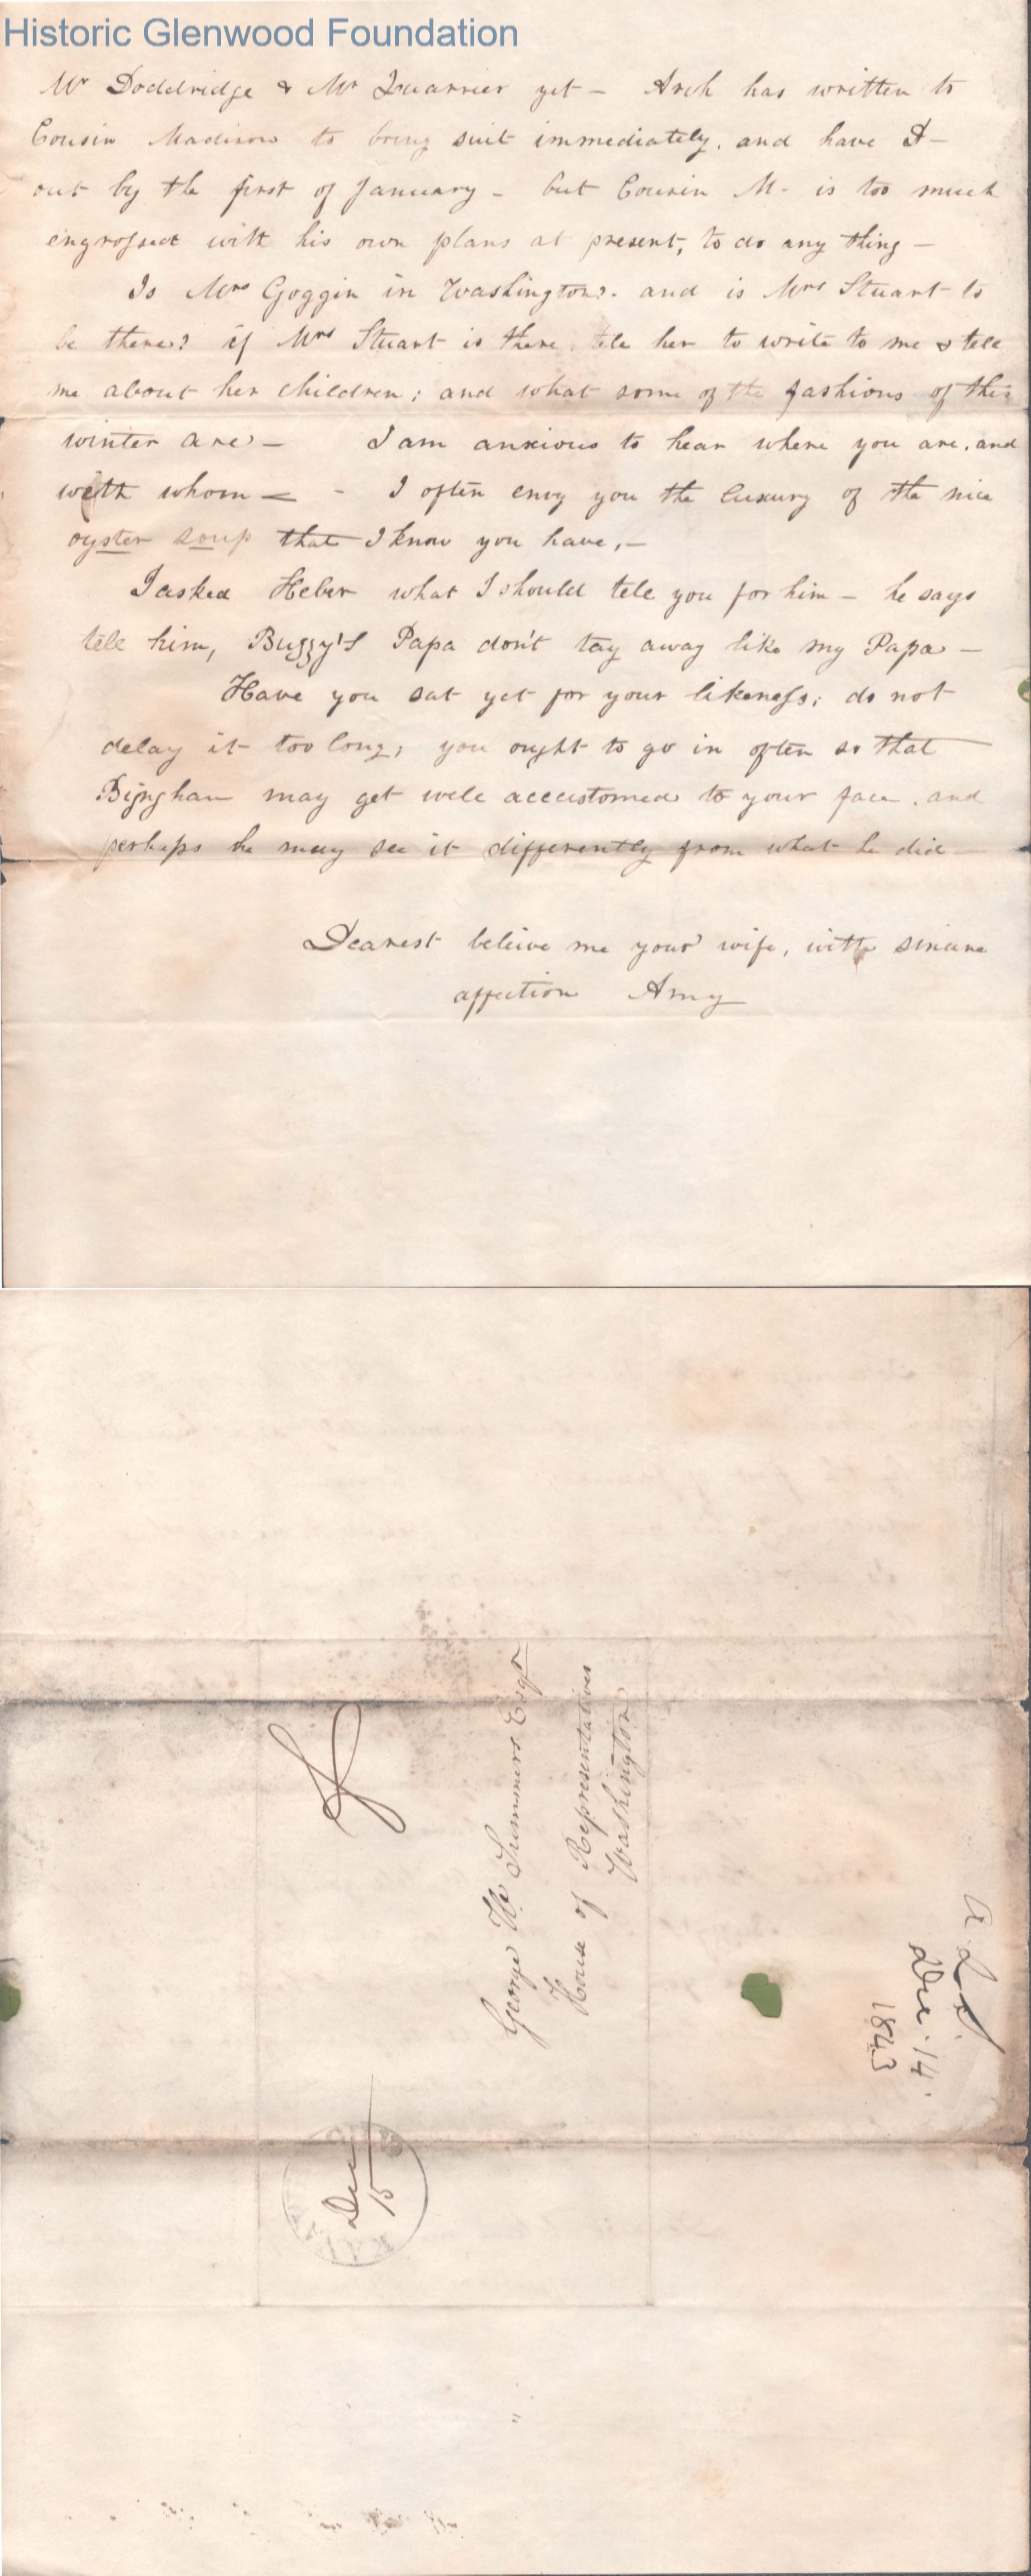 Historic Glenwood Foundation
Mr Doddridge & Mr Quarrier yet — Arch has written to
Cousin Madison to bring suit immediately, and have D—
out by the first of January — but Cousin M— is too much
engrossed with his own plans at present, to do any thing —
Is Mrs Goggin in Washington? and is Mrs Stuart to
be there? if Mrs Stuart is there tell her to write to me & tell
me about her children; and what some of the fashions of this
winter are — I am anxious to hear where you are, and
with whom — - I often envy you the luxury of the nice
oyster soup that I know you have, —
I asked Heber what I should tell you for him — he says
tell him, Buggy's Papa don't tay away like my Papa —
Have you sat yet for your likeness; do not
delay it too long; you ought to go in often so that
Bingham may get well accustomed to your face, and
perhaps he may see it differently from what he did —
Dearest beleive me your wife, with sincere
affection Amy
George W. Summers Esqr
House of Representatives
Washington
A L S.
Dec. 14.
1843
Dec
15